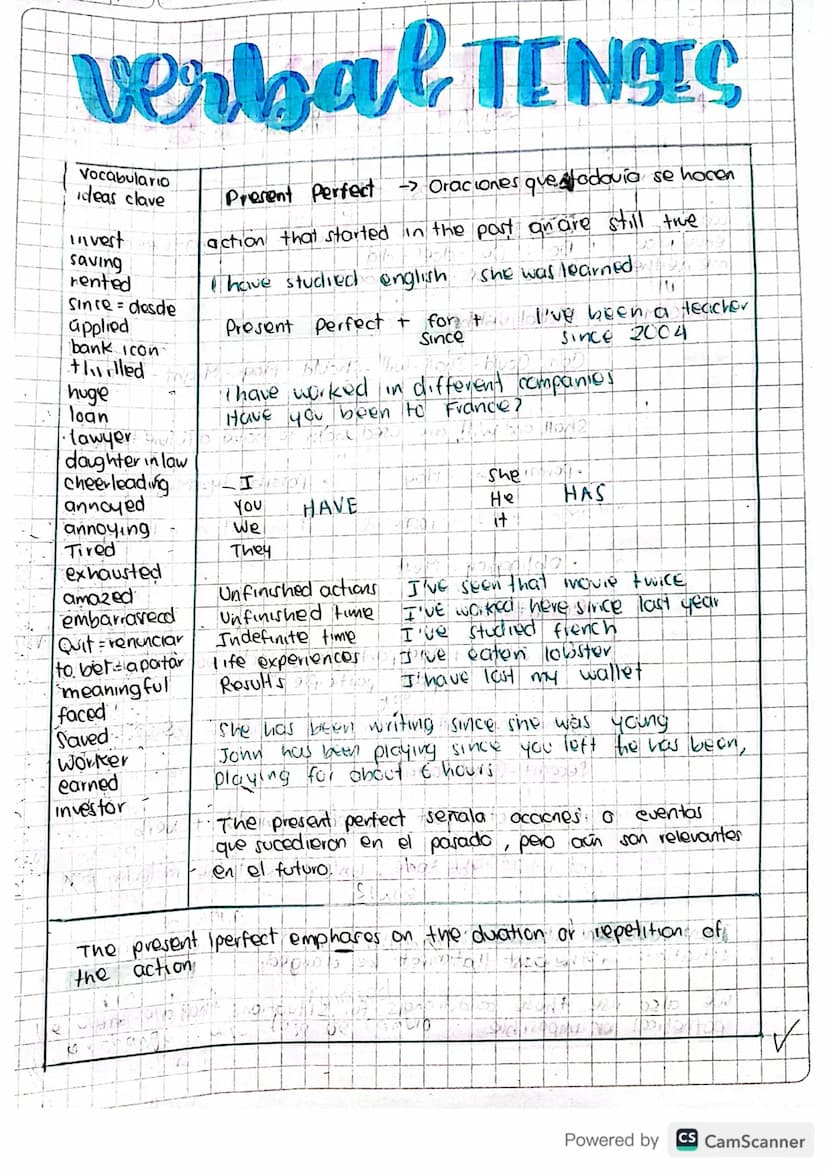 verbal TENSES
Vocabulario
ideas clave
invest
saving
rented
since = desde
applied
bank icon
thrilled
huge
loan
lawyer
daughter in law
cheerleading
annoyed
annoying
Tired
exhausted
amazed
embarrased
Quit = renunciar
to bet = apostar
meaningful
faced
Saved
worker
earned
investor
Present Perfect -> Oraciones que todavía se hacen
action that started in the past are still true
I have studied english she was learned
Present perfect + for + I've been a teacher
since since 2004
I have worked in different companies
Have you been to France?
I She
You HAVE He HAS
We it
They
Unfinished actions I've seen that movie twice
Unfinished time I've worked here since last year
Indefinite time I've studied french
life experiences I've eaten lobster
Results I have last my wallet
She has been writing since she was young
John has been playing since you left he has been,
playing for about 6 hours
The present perfect señala acciones o eventos
que sucedieron en el pasado, pero aún son relevantes
en el futuro.
The present perfect emphases on the duation or repetition of
the action
Powered by CS CamScanner